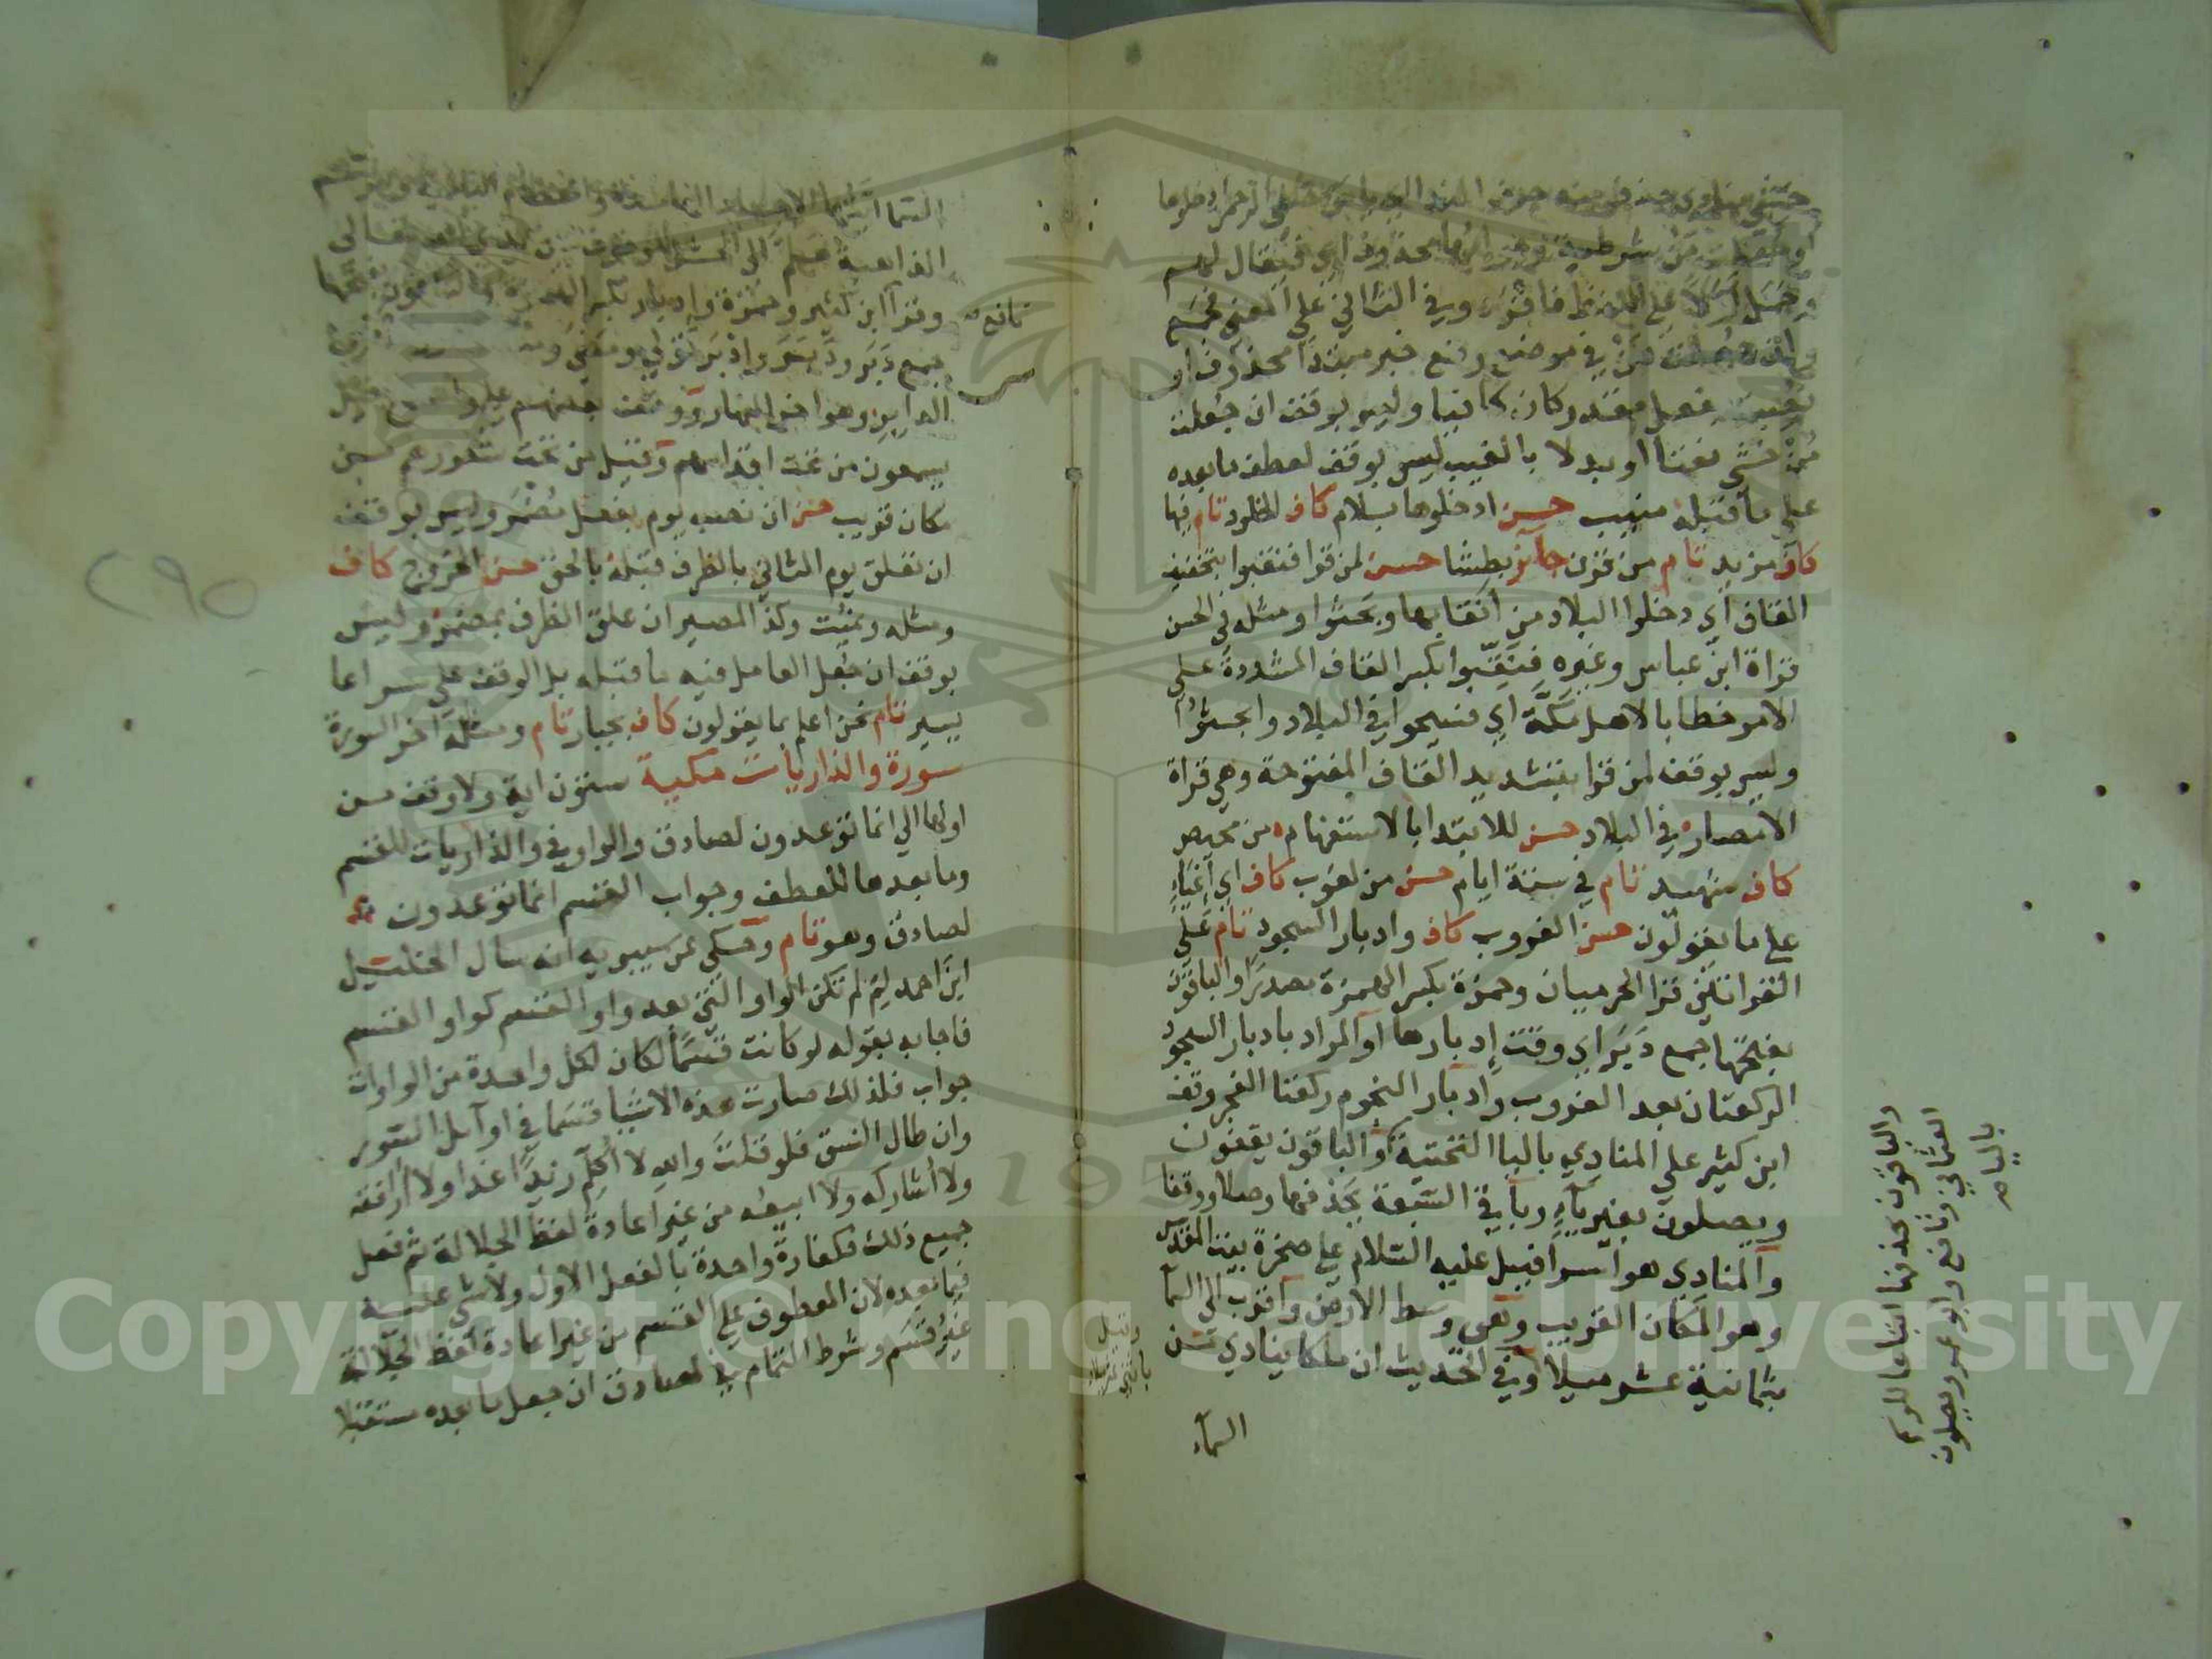 خشي منادى حذف منه حرف النداء اي يا من خشي الرحمن ادخلوها
او جعلت من شرطية وجوابها محذوف اي فيقال لهم
وحمل اولا على اللفظ فافرد وفي الثاني على المعنى فجمع
او جعلت من في موضع رفع خبر مبتدا محذوف او
نصبت بفعل مقدر وكان كافيا وليس بوقف ان جعلت
من خشي نعتا او بدلا بالغيب ليس بوقف لعطف ما بعده
على ما قبله منيب حسن ادخلوها بسلام كاف الخلود تام فيها
كاف مزيد تام من قرن جائز بطشا حسن لمن قرا فنقبوا بتخفيف
القاف اي دخلوا البلاد من انقابها وبحثوا ومثله في الحسن
قراة ابن عباس وغيره فنقبوا بكسر القاف المشددة على
الامر خطابا لاهل مكة اي فسيحوا في البلاد وابحثوا
وليس بوقف لمن قرا بتشديد القاف المفتوحة وهي قراة
الامصار في البلاد حسن للابتدا بالاستفهام من محيص
كاف شهيد تام في ستة ايام حسن من لغوب كاف اي اعياء
على ما يقولون حسن الغروب كاف وادبار السجود تام على
القراتين قرا الحرميان وحمزة بكسر الهمزة مصدرا والباقون
بفتحها جمع دبر اي وقت ادبارها او المراد بادبار السجود
الركعتان بعد الغروب وادبار النجوم ركعتا الفجر وقف
ابن كثير على المنادي باليا التحتية والباقون يقفون
ويصلون بغير ياء وباقي السبعة بحذفها وصلا ووقفا
والمنادي هو اسرافيل عليه السلام على صخرة بيت المقدس
وهو المكان القريب وهى وسط الارض واقرب الى السما
بثمانية عشر ميلا وفي الحديث ان ملكا ينادي من
السماء
والباقون بحذفها اتباعا للرسم
العثماني ونافع وابو عمرو يصلون
بالياء
السما ايتها الاجساد الهامدة والعظام البالية
الذاهبة هلم الى الحشر للوقوف بين يدي الله تعالى
وقرا ابن كثير وحمزة وادبار بكسر الهمزة والباقون بفتحها
نافع
جمع دبر ودبر وادبر تولى ومضى ومنه
الدابر وهو اخر النهار ووقف بعضهم على
يسمعون من تحت اقدامهم وقيل من تحت شعورهم من
مكان قريب حسن ان نصب يوم بفعل مضمر وليس بوقف
ان تعلق يوم الثاني بالظرف قبله بالحق حسن الخروج كاف
ومثله ونميت وكذا المصير ان علق الظرف بمضمر وليس
بوقف ان جعل العامل فيه ما قبله بل الوقف على سراعا
يسير تام نحن اعلم بما يقولون كاف بجبار تام ومثله اخر السورة
سورة والذاريات مكية ستون اية ولا وقف من
اولها الى انما توعدون لصادق والواو في والذاريات للقسم
وما بعدها للعطف وجواب القسم انما توعدون
لصادق وهو تام وحكي عن سيبويه انه سال الخليل
ابن احمد لم لم تكن الواو التي بعد واو القسم كواو القسم
فاجابه بقوله لو كانت قسما لكان لكل واحدة من الواوات
جواب فلذلك صارت هذه الاشيا قسما في اوايل السور
وان طال النسق فلو قلت والله لا اكلم زيدا غدا ولا ارافقه
ولا اشاركه ولا ابيعه من غير اعادة لفظ الجلالة ثم فعل
جميع ذلك فكفارة واحدة بالفعل الاول ولا شي عليه
فيما بعده لان المعطوف على القسم من غير اعادة لفظ الجلالة
غير قسم وشرط التمام في لصادق ان جعل ما بعده مستقبلا
٢٩٥
1957
Copyright © King Saud University